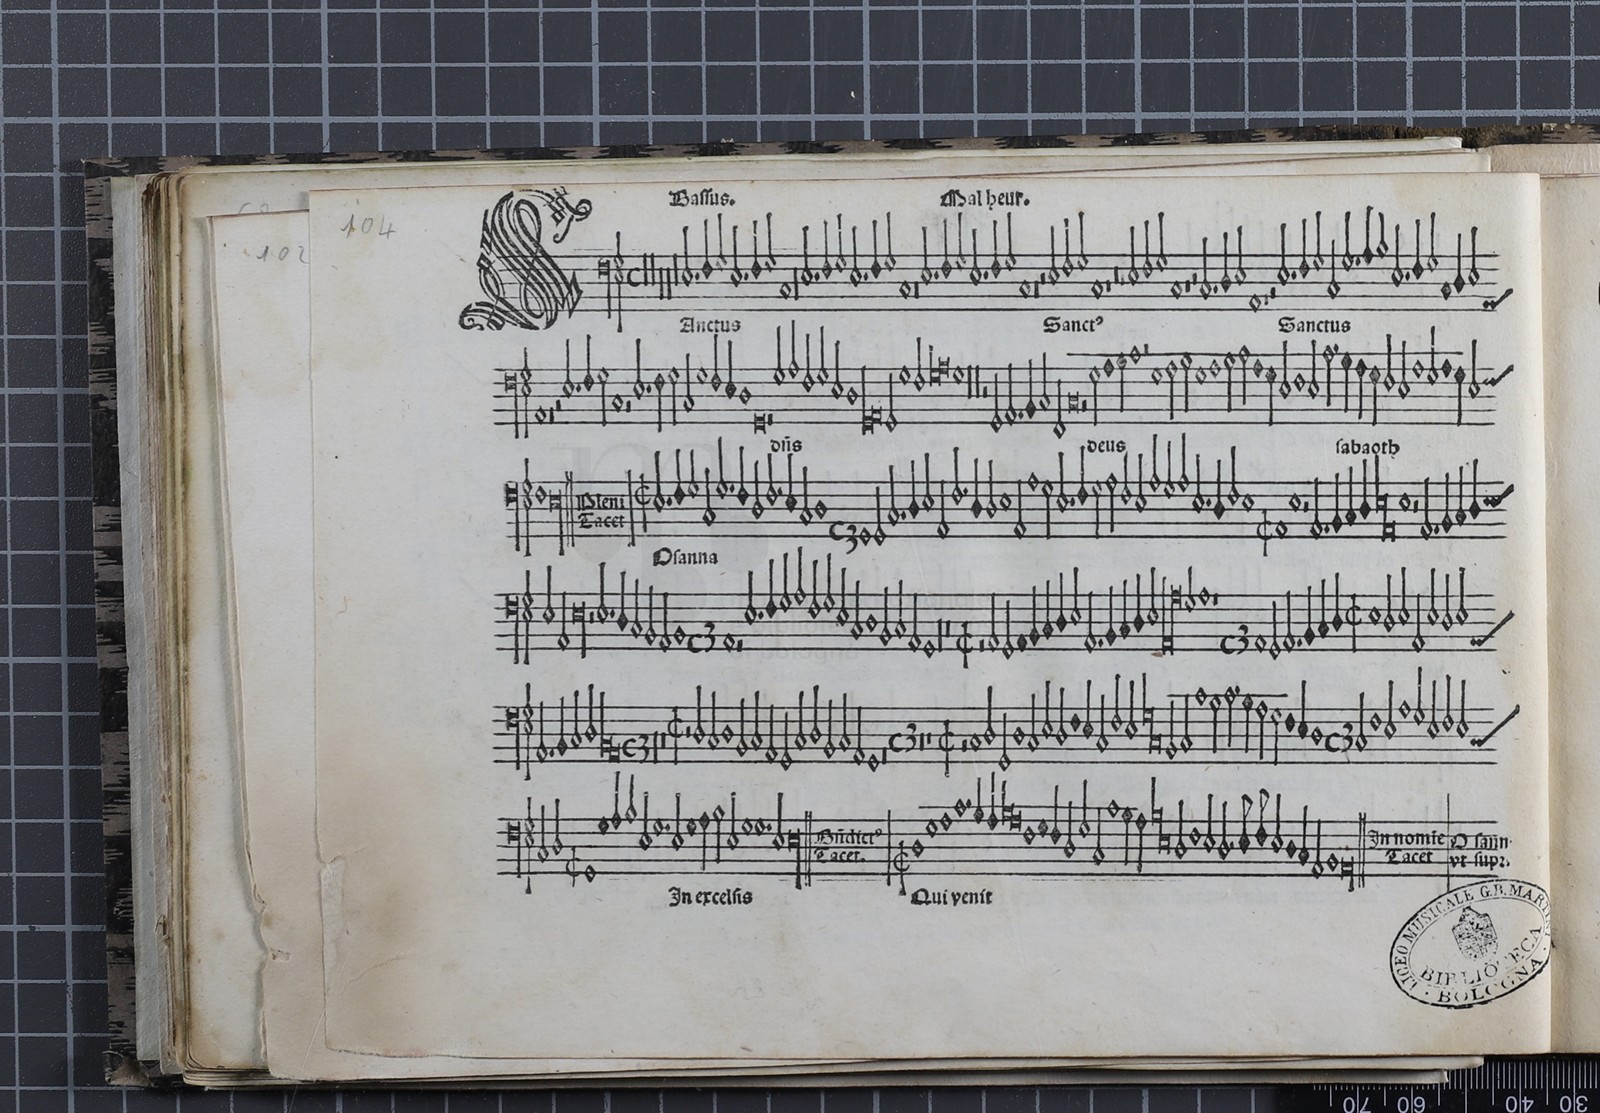 104
102
Bassus. Mal heur.
SAnctus Sanct⁹ Sanctus
dñs deus sabaoth
Pleni
Tacet
Osanna
In excelsis
Tacet.
Qui venit
In nomie
Tacet
O sann
vt supr.
LICEO MUSICALE G.B. MARTINI
BIBLIOTECA
BOLOGNA
70 60 50 40 30